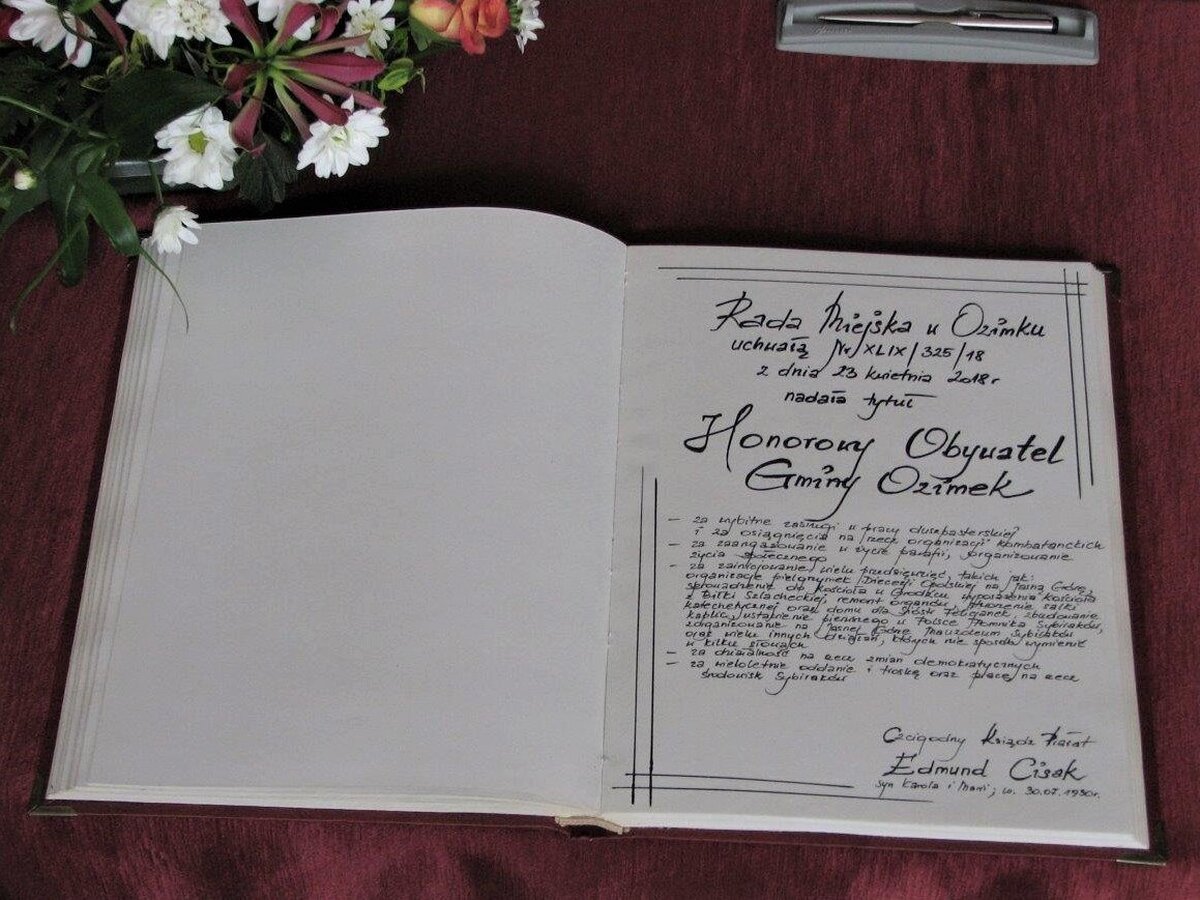 Rada Miejska w Ozimku
uchwałą Nr XLIX/325/18
z dnia 23 kwietnia 2018 r
nadała tytuł
Honorowy Obywatel
Gminy Ozimek
– za wybitne zasługi w pracy duszpasterskiej
i za osiągnięcia na rzecz organizacji kombatanckich
– za zaangażowanie w życie parafii, organizowanie
życia społecznego
– za zainicjowanie wielu przedsięwzięć, takich jak:
organizacje pielgrzymek Diecezji Opolskiej na Jasną Górę,
sprowadzenie do kościoła w Grodźcu wyposażenia kościoła
z Biłki Szlacheckiej, remont organów, tworzenie salki
katechetycznej oraz domu dla Sióstr Felicjanek, zbudowanie
kaplic, ustawienie pierwszego w Polsce Pomnika Sybiraków,
zorganizowanie na Jasnej Górze Mauzoleum Sybiraków
oraz wielu innych działań, których nie sposób wymienić
w kilku słowach
– za działalność na rzecz zmian demokratycznych
– za wieloletnie oddanie i troskę oraz pracę na rzecz
środowisk Sybiraków
Czcigodny Ksiądz Prałat
Edmund Cisak
syn Karola i Marii, ur. 30.07.1930r.